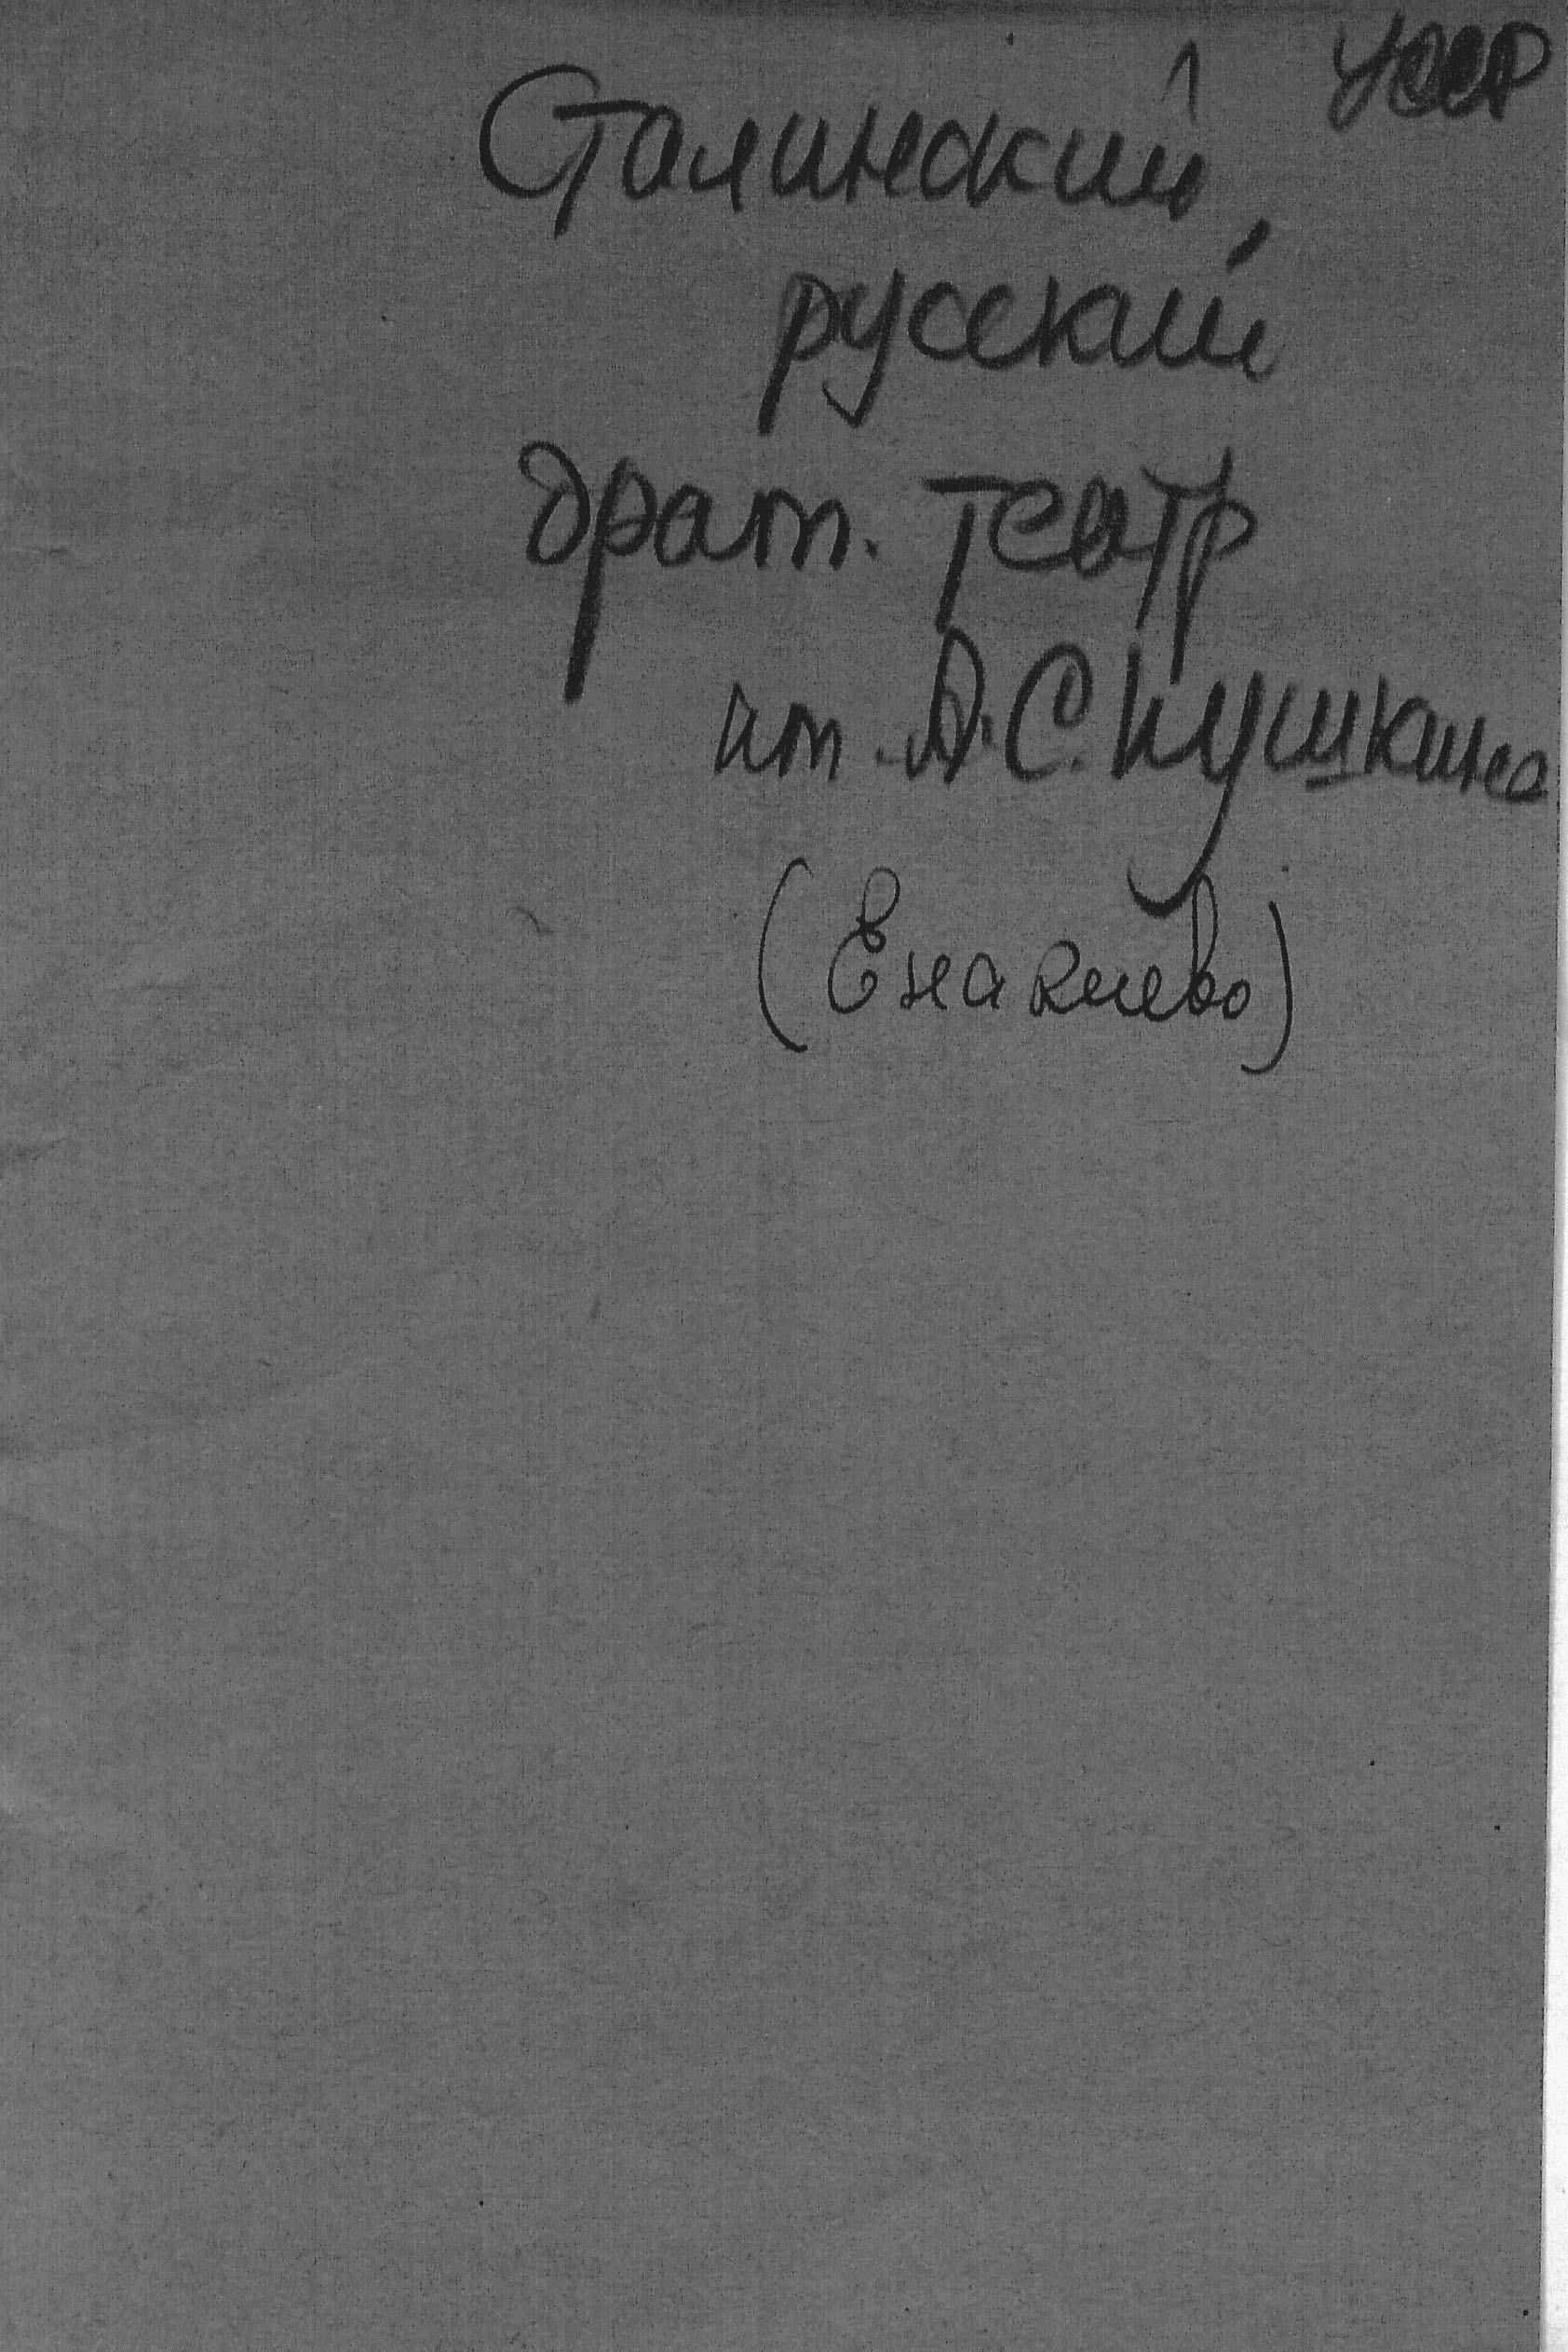 УССР
Сталинский
русский
драм. театр
им. А.С. Пушкина
(Енакиево)